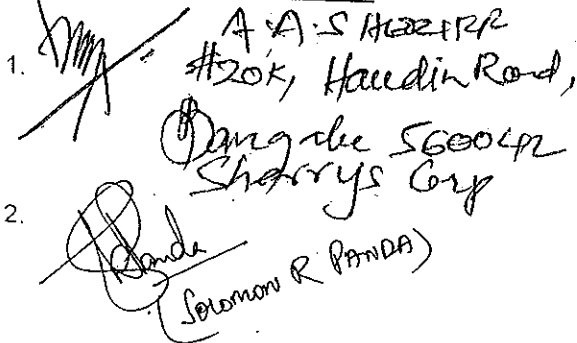 1. A.A.S
#20K, Haudin Road,
Bangalore 560042
Sherrys Corp
2. Panda
(Solomon R PANDA)